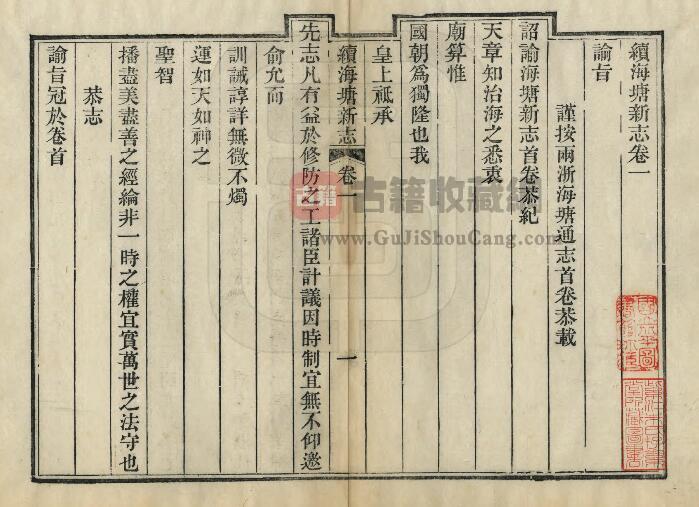 續海塘新志卷一
諭旨
謹按兩浙海塘通志首卷恭載
詔諭海塘新志首卷恭紀
天章知治海之悉衷
廟算惟
國朝為獨隆也我
皇上祗承
續海塘新志 卷一 一
先志凡有益於修防之工諸臣計議因時制宜無不仰邀
俞允而
訓誡諄詳無微不燭
運如天如神之
聖智
播盡美盡善之經綸非一時之權宜實萬世之法守也
恭志
諭旨冠於卷首
古籍
古籍收藏網
www.GuJiShouCang.com